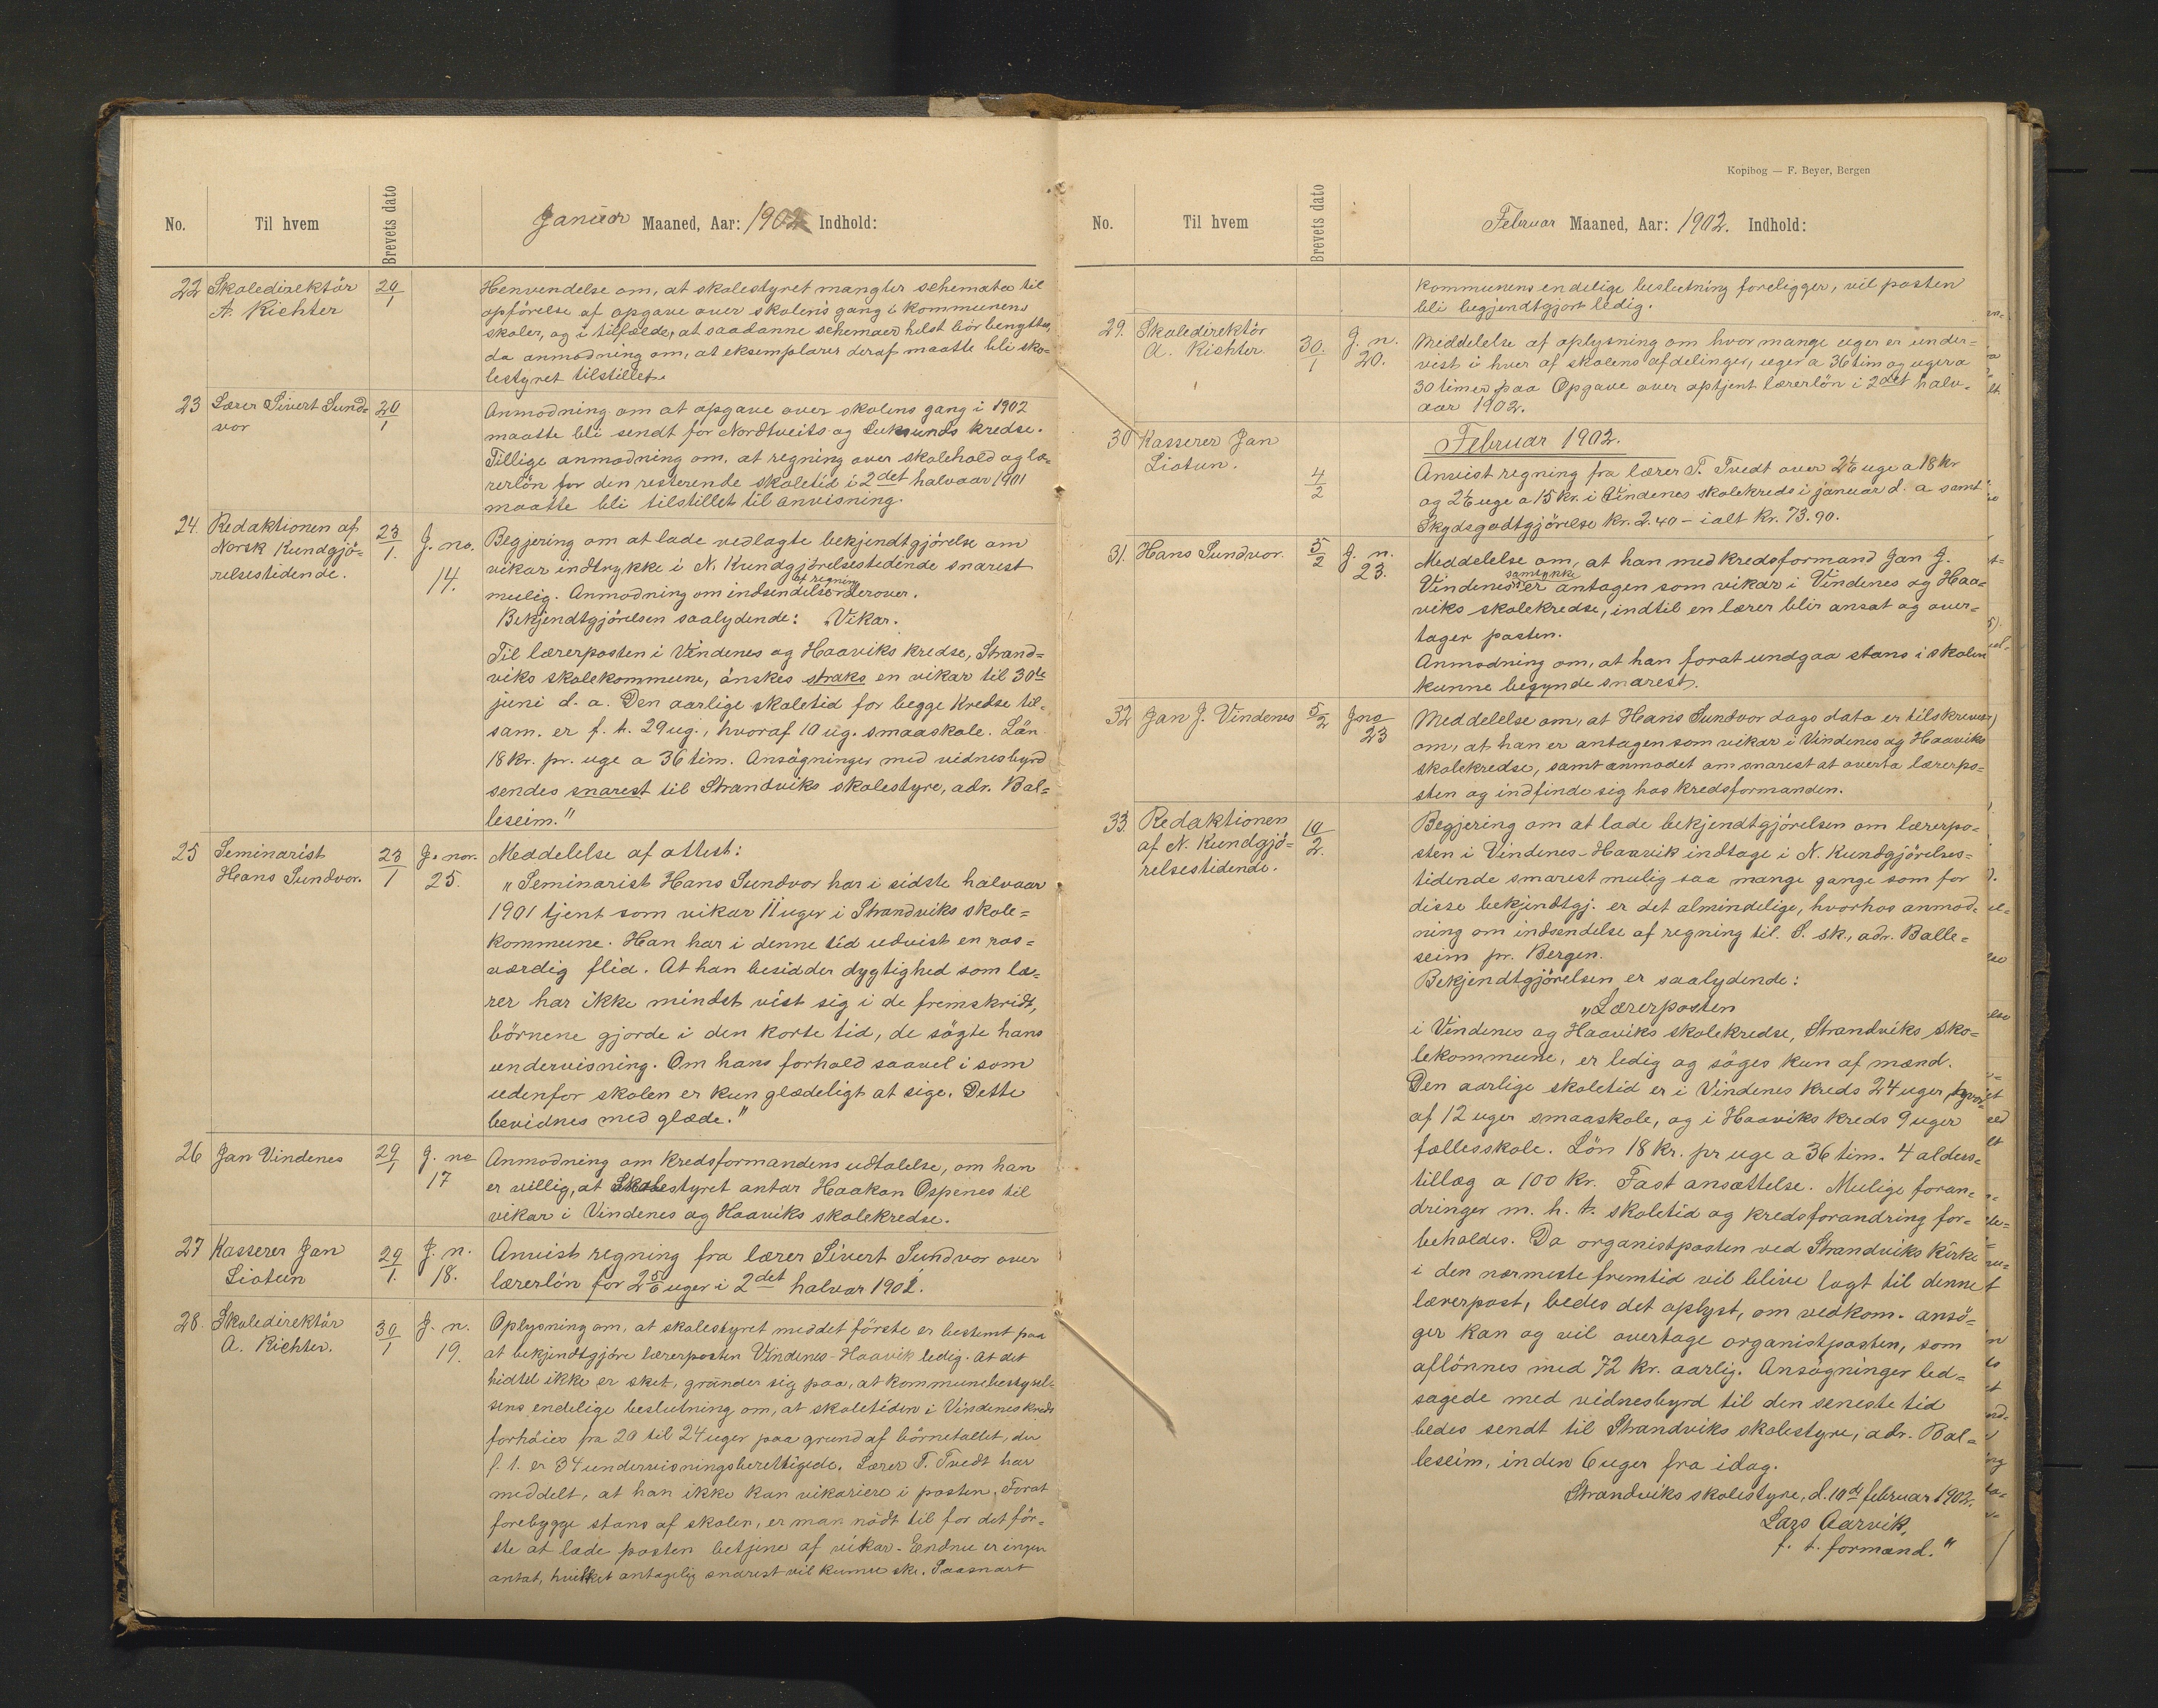 No. Til hvem Brevets dato Januar Maaned, Aar: 1902 Indhold:
22 Skoledirektör 20/1 Henvendelse om, at skolestyret mangler schemata til
A. Richter opförelse af opgave over skolens gang i kommunens
skoler, og i tilfælde, at saadanne schemaer helst bör benyttes,
da anmodning om, at eksemplarer deraf maatte bli sko-
lestyret tilstillet.
23 Lærer Sivert Sund- 20/1 Anmodning om at opgave over skolens gang i 1902
vor maatte bli sendt for Nordtveits og Euksunds kredse.
Tillige anmodning om, at regning over skolehold og læ-
rerlön for den resterende skoletid i 2det halvaar 1901
maatte bli tilstillet til anvisning.
24. Redaktionen af 23/1. J. no. Begjering om at lade vedlagte bekjendtgjörelse om
Norsk Kundgjö- 14. vikar indtrykke i N. Kundgjörelsestidende snarest
relsestidende. mulig. Anmodning om indsendelse af regning derover.
Bekjendtgjörelsen saalydende: „Vikar.
Til lærerposten i Vindenes og Haaviks kredse, Strand-
viks skolekommune, önskes straks en vikar til 30te
juni d. a. Den aarlige skoletid for begge kredse til-
sam. er f. t. 29 ug., hvoraf 10 ug. smaaskole. Lön
18 kr. pr. uge a 36 tim. Ansögninger med vidnesbyrd
sendes snarest til Strandviks skolestyre, adr. Bal-
leseim."
25 Seminarist 23/1 J. nor. Meddelelse af attest:
Hans Sundvor. 25. „Seminarist Hans Sundvor har i sidste halvaar
1901 tjent som vikar 11 uger i Strandviks skole-
kommune. Han har i denne tid udvist en ros-
værdig flid. At han besidder dygtighed som læ-
rer har ikke mindst vist sig i de fremskridt,
börnene gjorde i den korte tid, de sögte hans
undervisning. Om hans forhold saavel i som
udenfor skolen er kun glædeligt at sige. Dette
bevidnes med glæde."
26 Jan Vindenes 29/1 J. no Anmodning om kredsformandens udtalelse, om han
17 er villig, at Skolestyret antar Haakon Ospenes til
vikar i Vindenes og Haaviks skolekredse.
27 Kasserer Jan 29/1. J. n. Anvist regning fra lærer Sivert Sundvor over
Liotun 18. lærerlön for 2 5/6 uger i 2det halvar 1901.
28. Skoledirektör 30/1 J. n. Oplysning om, at skolestyret med det förste er bestemt paa
A. Richter. 19. at bekjendtgjöre lærerposten Vindenes-Haavik ledig. At det
hidtil ikke er sket, grunder sig paa, at kommunebestyrel-
sens endelige beslutning om, at skoletiden i Vindenes kreds
forhöies fra 20 til 24 uger paa grund af börnetallet, der
f. t. er 34 undervisningsberettigede. Lærer T. Tvedt har
meddelt, at han ikke kan vikariere i posten. Forat
forebygge stans af skolen, er man nödt til for det för-
ste at lade posten betjene af vikar. Endnu er ingen
antat, hvilket antagelig snarest vil kunne ske. Saasnart
Kopibog — F. Beyer, Bergen
No. Til hvem Brevets dato Februar Maaned, Aar: 1902. Indhold:
kommunens endelige beslutning foreligger, vil posten
bli begjendtgjort ledig.
29. Skoledirektör 30./1 J. n. Meddelelse af oplysning om hvor mange uger er under-
A. Richter 20. vist i hver af skolens afdelinger, uger a 36 tim og uger a
30 timer paa Opgave over optjent lærerlön i 2det halv-
aar 1902.
Februar 1902.
30 Kasserer Jan 4/2 Anvist regning fra lærer T. Tvedt over 2 1/6 uge a 18 kr
Liotun. og 2 1/6 uge a 15 kr. i Vindenes skolekreds i januar d. a samt
Skydsgodtgjörelse kr. 2.40 – ialt kr. 73.90.
31. Hans Sundvor. 5/2 J. n. Meddelelse om, at han med kredsformand Jan J.
23. Vindenes's samtykke er antagen som vikar i Vindenes og Haa-
viks skolekredse, indtil en lærer blir ansat og over-
tager posten.
Anmodning om, at han forat undgaa stans i skolen
kunne begynde snarest.
32 Jan J. Vindenes 5/2 J no Meddelelse om, at Hans Sundvor dags dato er tilskreven
23 om, at han er antagen som vikar i Vindenes og Haaviks
skolekredse, samt anmodet om snarest at overta lærerpo-
sten og indfinde sig hos kredsformanden.
33. Redaktionen 10/2. Begjering om at lade bekjendtgjörelsen om lærerpo-
af N. Kundgjö- sten i Vindenes-Haavik indtage i N. Kundgjörelses-
relsestidende. tidende snarest mulig saa mange gange som for
disse bekjendtgj. er det almindelige, hvorhos anmod-
ning om indsendelse af regning til. S. sk., adr. Balle-
seim pr. Bergen.
Bekjendtgjörelsen er saalydende:
„Lærerposten
i Vindenes og Haaviks skolekredse, Strandviks sko-
lekommune, er ledig og söges kun af mænd.
Den aarlige skoletid er i Vindenes kreds 24 uger, hvor-
af 12 uger smaaskole, og i Haaviks kreds 9 uger
fællesskole. Lön 18 kr. pr uge a 36 tim. 4 alders-
tillæg a 100 kr. Fast ansættelse. Mulige foran-
dringer m. h. t. skoletid og kredsforandring for-
beholdes. Da organistposten ved Strandviks kirke
i den nærmeste fremtid vil blive lagt til denne
lærerpost, bedes det oplyst, om vedkom. ansö-
ger kan og vil overtage organistposten, som
aflönnes med 72 kr. aarlig. Ansögninger led-
sagede med vidnesbyrd til den seneste tid
bedes sendt til Strandviks skolestyre, adr. Bal-
leseim, inden 6 uger fra idag.
Strandviks skolestyre, d. 10de februar 1902.
Lars Aarvik,
f. t. formand."